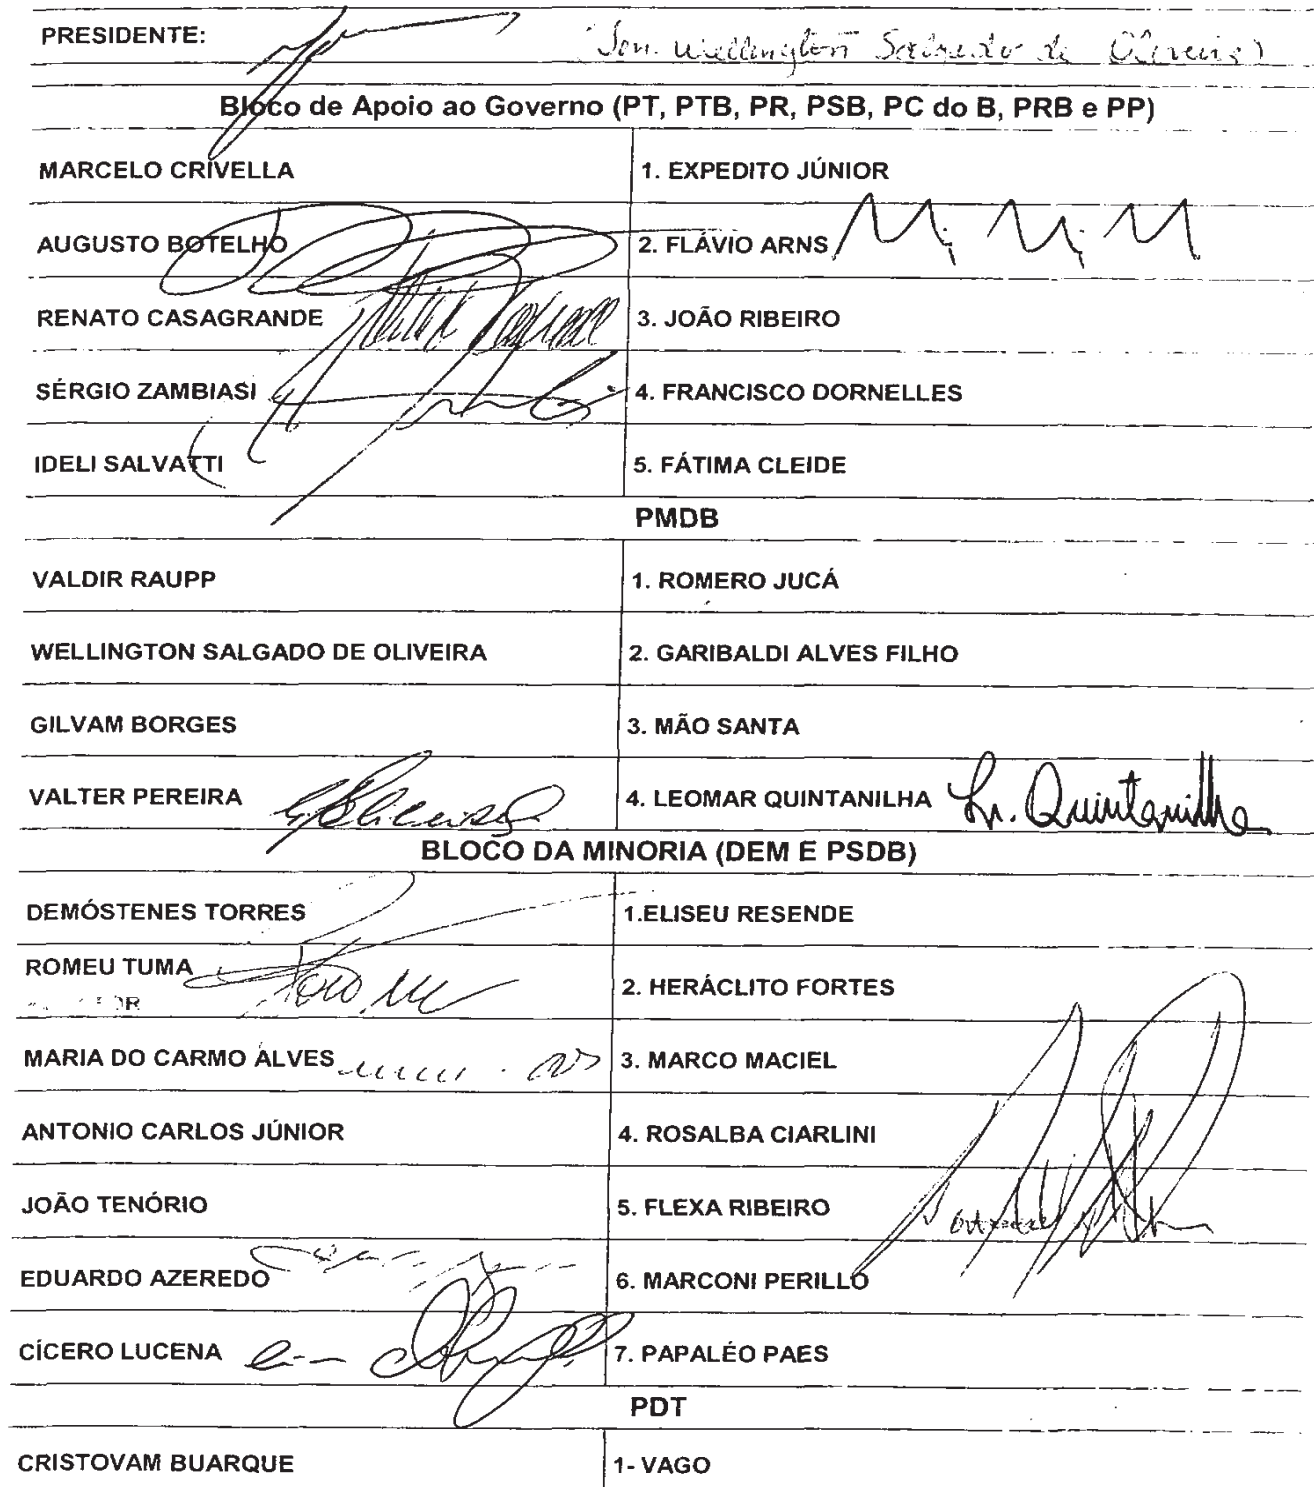 PRESIDENTE: (Sen. Wellington Salgado de Oliveira)
Bloco de Apoio ao Governo (PT, PTB, PR, PSB, PC do B, PRB e PP)
MARCELO CRIVELLA 1. EXPEDITO JÚNIOR
AUGUSTO BOTELHO 2. FLÁVIO ARNS
RENATO CASAGRANDE 3. JOÃO RIBEIRO
SÉRGIO ZAMBIASI 4. FRANCISCO DORNELLES
IDELI SALVATTI 5. FÁTIMA CLEIDE
PMDB
VALDIR RAUPP 1. ROMERO JUCÁ
WELLINGTON SALGADO DE OLIVEIRA 2. GARIBALDI ALVES FILHO
GILVAM BORGES 3. MÃO SANTA
VALTER PEREIRA 4. LEOMAR QUINTANILHA Lr. Quintanilha
BLOCO DA MINORIA (DEM E PSDB)
DEMÓSTENES TORRES 1.ELISEU RESENDE
ROMEU TUMA 2. HERÁCLITO FORTES
MARIA DO CARMO ALVES 3. MARCO MACIEL
ANTONIO CARLOS JÚNIOR 4. ROSALBA CIARLINI
JOÃO TENÓRIO 5. FLEXA RIBEIRO
EDUARDO AZEREDO 6. MARCONI PERILLO
CÍCERO LUCENA 7. PAPALÉO PAES
PDT
CRISTOVAM BUARQUE 1- VAGO